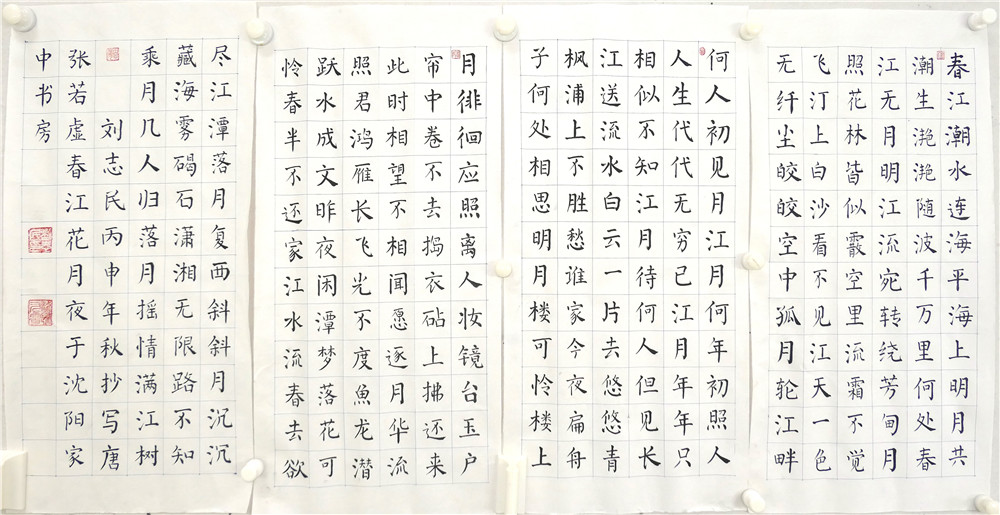 春江潮水连海平海上明月共
潮生滟滟随波千万里何处春
江无月明江流宛转绕芳甸月
照花林皆似霰空里流霜不觉
飞汀上白沙看不见江天一色
无纤尘皎皎空中孤月轮江畔
何人初见月江月何年初照人
人生代代无穷已江月年年只
相似不知江月待何人但见长
江送流水白云一片去悠悠青
枫浦上不胜愁谁家今夜扁舟
子何处相思明月楼可怜楼上
月徘徊应照离人妆镜台玉户
帘中卷不去捣衣砧上拂还来
此时相望不相闻愿逐月华流
照君鸿雁长飞光不度魚龙潜
跃水成文昨夜闲潭梦落花可
怜春半不还家江水流春去欲
尽江潭落月复西斜斜月沉沉
藏海雾碣石潇湘无限路不知
乘月几人归落月摇情满江树
刘志民丙申年秋抄写唐
张若虚春江花月夜于沈阳家
中书房